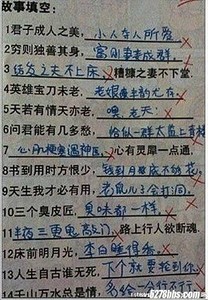 故事填空:
1君子成人之美, 小人夺人所爱
2穷则独善其身, 富则妻妾成群
3 结发之夫不上床 糟糠之妻不下堂
4英雄宝刀未老, 老娘
5天若有情天亦老, 嘿,老天
6问君能有几多愁, 恰似一群太监上青楼
7 心肌梗塞遇神医 心有灵犀一点通
8书到用时方恨少, 钱到月底不够花
9天生我才必有用, 老鼠儿子会打洞
10三个臭皮匠, 臭味都一样
11 半夜三更鬼敲门 路上行人欲断魂
12床前明月光, 李白睡得香
13人生自古谁无死, 下个就要轮到你
千山万水总是情, 多给一分行不行
www.b278bhs.com